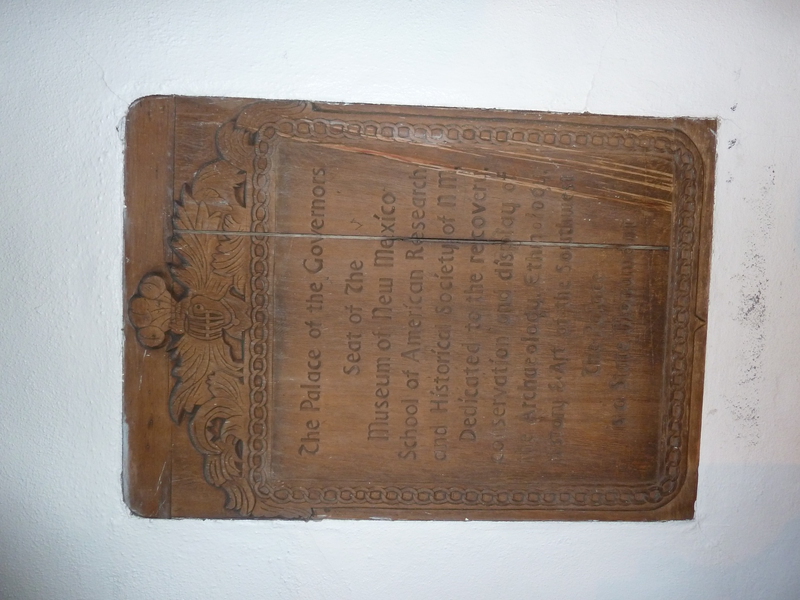 The Palace of the Governors
Seat of The
Museum of New Mexico
School of American Research
and Historical Society of N M
Dedicated to the recovery
conservation and display of
the Archaeology, Ethnology
History & Art of the Southwest